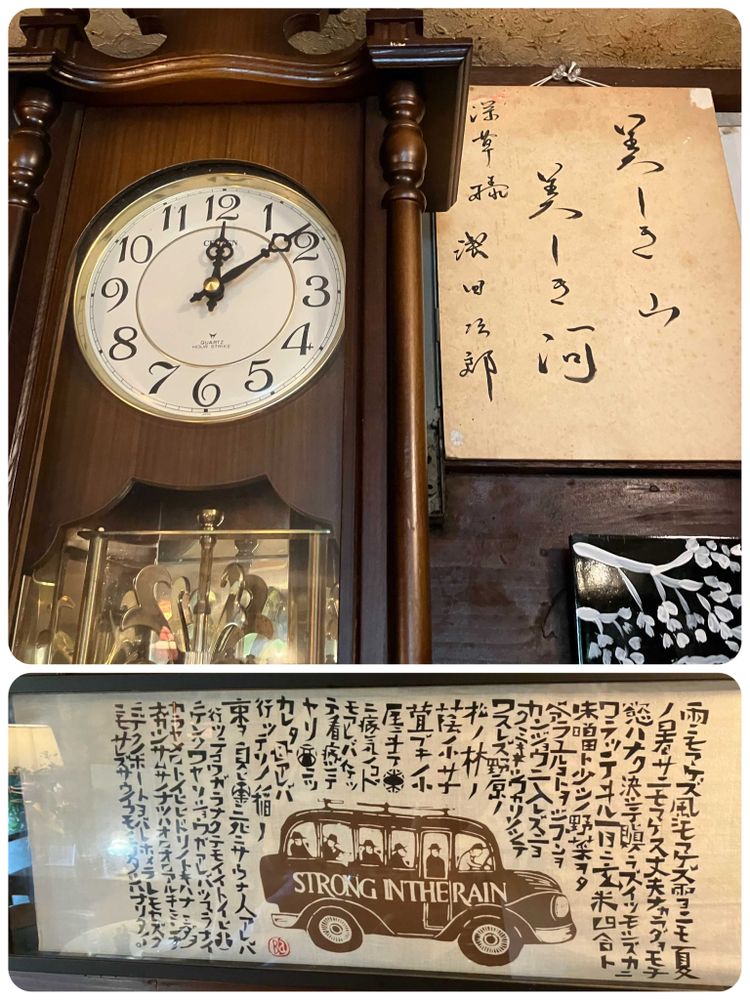 12
1
2
3
4
5
6
7
8
9
10
11
QUARTZ
HOUR STRIKE
美しき山
美しき河
深草様 浅田次郎
雨ニモマケズ風ニモマケズ雪ニモ夏
ノ暑サニモマケズ丈夫ナカラダヲモチ
慾ハナク決シテ瞋ラズイツモシズカニ
ワラッテヰル一日ニ玄米四合ト
味噌ト少シノ野菜ヲタ
ベアラユルコトヲジブンヲ
カンジョウニ入レズニヨ
クミキキシワカリソシテ
ワスレズ野原ノ
松ノ林ノ
蔭ノ小サナ
萓ブキノ小
屋ニヰテ東
ニ病気ノコド
モアレバ行ッ
テ看病シテ
ヤリ西ニツ
カレタ母アレバ
行ッテソノ稲ノ
束ヲ負ヒ南ニ死ニサウナ人アレバ
行ッテコワガラナクテモイイトイヒ北
ニケンクヮヤソショウガアレバツマラナイ
カラヤメロトイヒヒドリノトキハナミダ
ヲナガシサムサノナツハオロオロアルキミンナ
ニデクノボートヨバレホメラレモセズク
ニモサレズサウイフモノニワタシハナリタイ。
STRONG IN THE RAIN